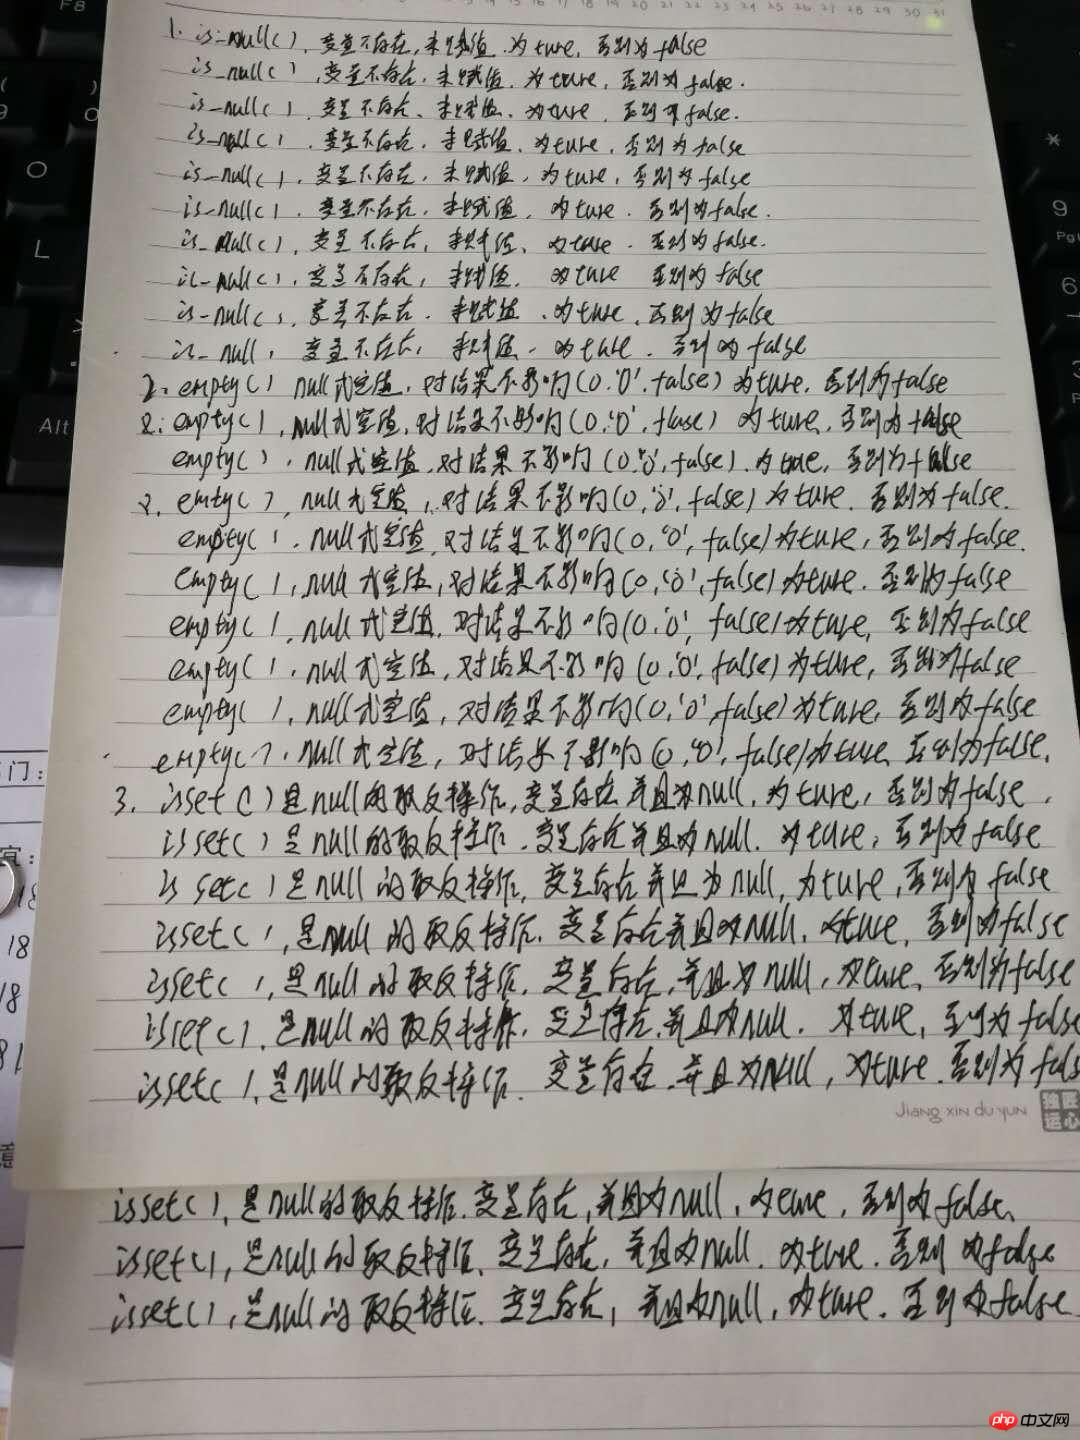 14 15 16 17 18 19 20 21 22 23 24 25 26 27 28 29 30 31
1. is_null(), 变量不存在, 未赋值, 为ture, 否则为false
is_null(), 变量不存在, 未赋值, 为ture, 否则为false.
is_null(), 变量不存在, 未赋值, 为ture, 否则为false.
is_null(), 变量不存在, 未赋值, 为ture, 否则为false
is_null(), 变量不存在, 未赋值, 为ture, 否则为false
is_null(), 变量不存在, 未赋值, 为ture. 否则为false.
is_null(), 变量不存在, 未赋值, 为ture. 否则为false.
is_null(), 变量不存在, 未赋值, 为ture 否则为false
is_null(), 变量不存在. 未赋值, 为ture, 否则为false
is_null, 变量不存在, 未赋值, 为ture. 否则为false
2. empty() null或空值, 对结果不影响(0,'0',false) 为ture, 否则为false
2. empty(), null或空值, 对结果不影响(0,'0',flase) 为ture, 否则为false
empty(), null或空值, 对结果不影响(0,'0',false). 为true, 否则为false
2. emty(), null或空值, 对结果不影响(0,'0',false) 为ture. 否则为false.
empty(), null或空值, 对结果不影响(0,'0',false)为ture, 否则为false.
empty(), null或空值, 对结果不影响(0,'0',false)为ture. 否则为false
empty(), null或空值, 对结果不影响(0,'0',false)为ture, 否则为false
empty(), null或空值, 对结果不影响(0,'0',false)为ture, 否则为false
empty(), null或空值, 对结果不影响(0,'0',false)为ture, 否则为false
empty(), null或空值, 对结果不影响(0,'0',false)为ture 否则为false.
3. isset()是null的取反操作, 变量存在并且为null, 为ture, 否则为false.
isset()是null的取反操作, 变量存在并且为null. 为ture, 否则为false
isset()是null的取反操作, 变量存在并且为null, 为ture, 否则为false
isset(), 是null的取反操作. 变量存在并且为null, 为ture, 否则为false
isset(), 是null的取反操作. 变量存在, 并且为null, 为ture, 否则为false
isset(), 是null的取反操作, 变量存在, 并且为null. 为ture, 否则为false
isset(), 是null的取反操作. 变量存在, 并且为null, 为ture. 否则为fals
Jiang xin du yun
独匠运心
isset(), 是null的取反操作, 变量存在, 并且为null, 为ture, 否则为false.
isset(), 是null的取反操作, 变量存在, 并且为null. 为ture. 否则为false
isset(), 是null的取反操作. 变量存在, 并且为null, 为ture. 否则为false
F8
O
L
Alt
*
9
PgU
6
门:
18
18
php 中文网